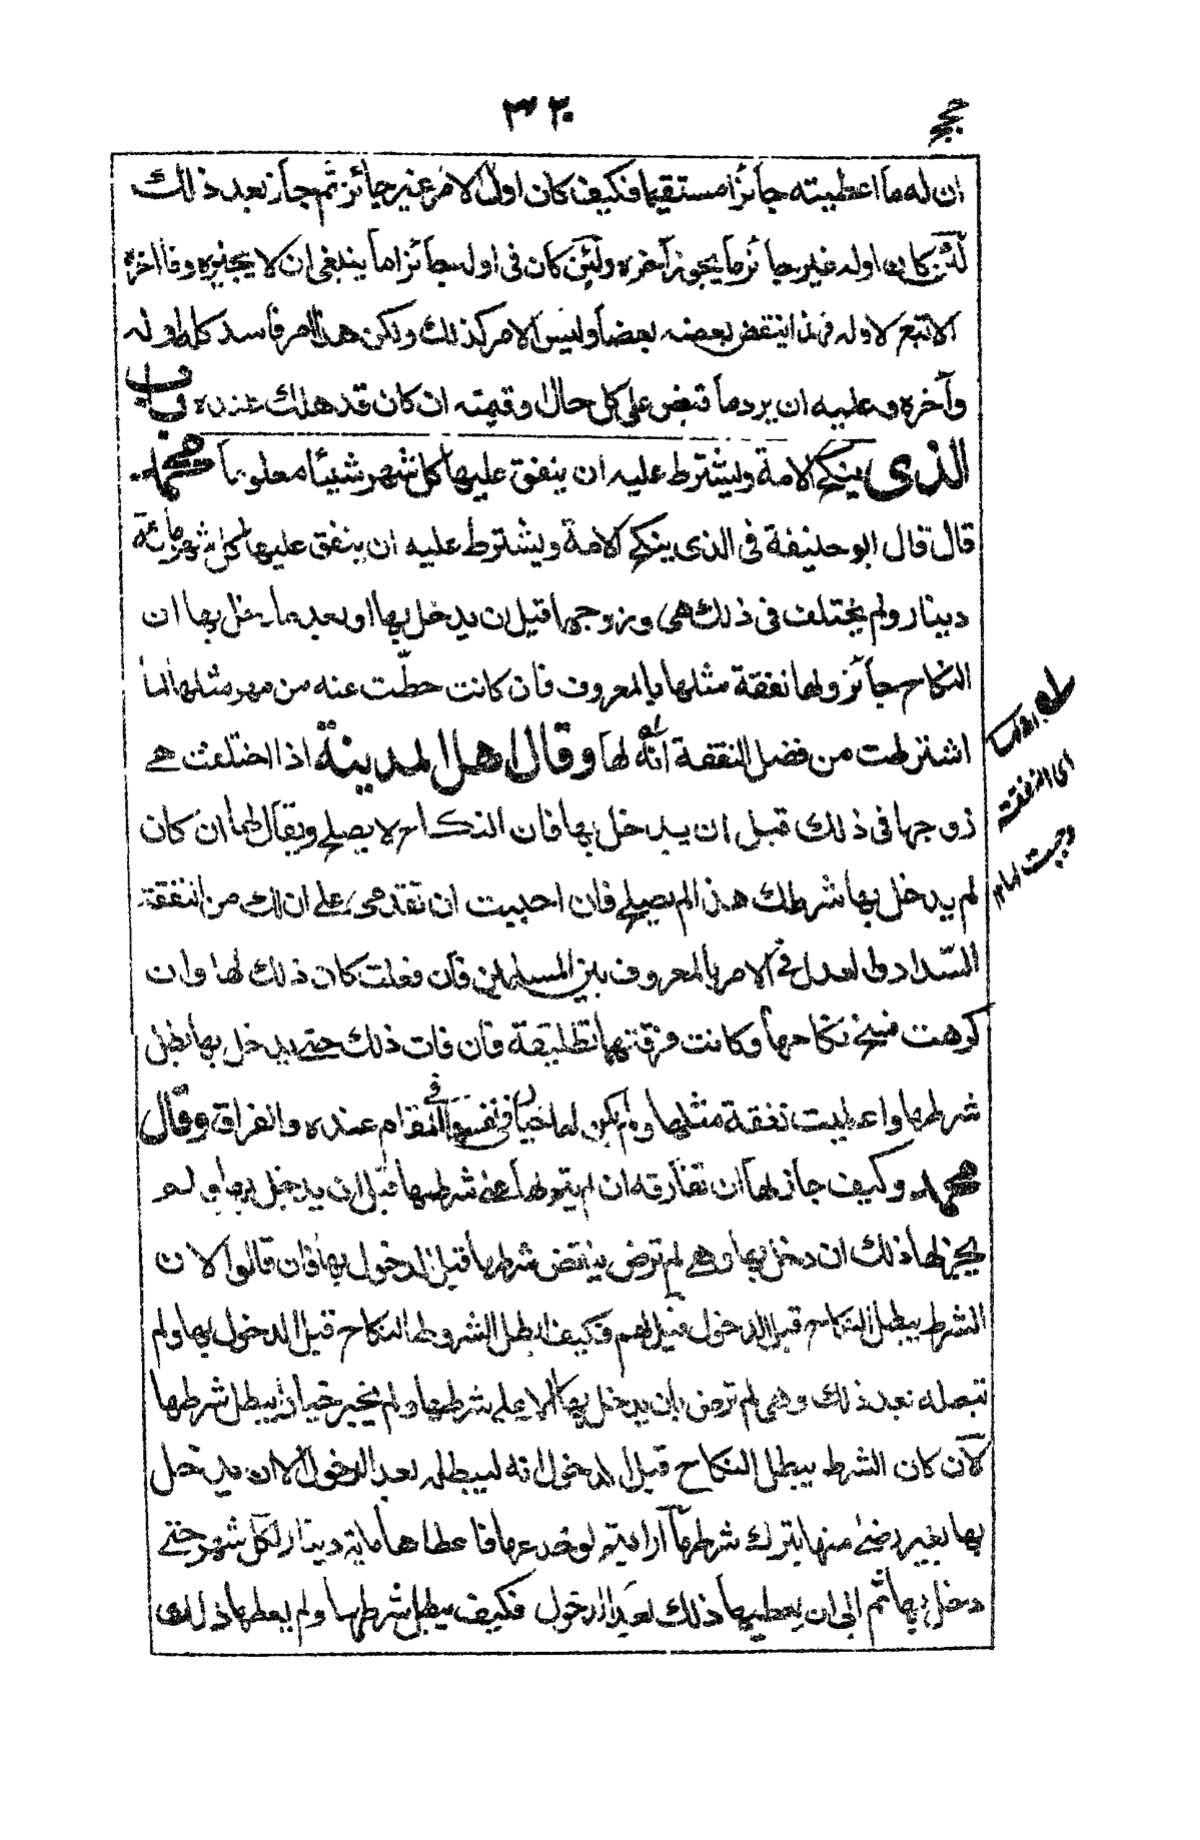 حجج
٣٢٠
ان له ما اعطيته جائزا مستقيما فكيف كان اول الامر غير جائز ثم جاز بعد ذلك
لئن كان اوله غير جائز ما يجوز آخره ولئن كان فى اوله جائزا ما ينبغى ان لا يجيزوه وما اخره
الا تبع لاوله فهذا ينقض بعضه بعضا وليس الامر كذلك ولكن هذا امر فاسد كله اوله
وآخره وعليه ان يرد ما قبض على كل حال وقيمته ان كان قد هلك عنده باب
الذى ينكح الامة ويشترط عليه ان ينفق عليها كل شهر شيئا معلوما محمد
قال قال ابو حنيفة فى الذى ينكح الامة ويشترط عليه ان ينفق عليها كل شهر مائة
دينار ولم يختلف فى ذلك هى وزوجها قبل ان يدخل بها او بعد ما دخل بها ان
النكاح جائز ولها نفقة مثلها بالمعروف فان كانت حطّت عنه من مهر مثلها لما
اشترطت من فضل النفقة انه لها وقال اهل المدينة اذا اختلفت هى
زوجها فى ذلك قبل ان يدخل بها فان النكاح لا يصلح ويقال لهما ان كان
لم يدخل بها شرطك هذا لم يصلح فان احببت ان تقدمى على ان لك من النفقة
السّداد والعدل فى الامر بالمعروف بين المسلمين فان فعلت كان ذلك لها وان
كرهت فسخ نكاحها وكانت فرقتهما تطليقة فان فات ذلك حتى يدخل بها بطل
شرطها واعطيت نفقة مثلها ولم يكن لها خيار فى نفسها فى المقام عنده والفراق وقال
محمد وكيف جاز لها ان تفارقه ان لم يتم لها على شرطها قبل ان يدخل بها ولم
يجز لها ذلك ان دخل بها وهى لم ترض بنقض شرطها قبل الدخول بها فان قالوا لان
الشرط يبطل النكاح قبل الدخول قيل لهم فكيف ابطل الشروط النكاح قبل الدخول بها ولم
تبطله بعد ذلك وهى لم ترض بان يدخل بها الا على شرطها ولم يخير خيار يبطل شرطها
لان كان الشرط يبطل النكاح قبل الدخول انه ليبطله بعد الدخول الا ان يدخل
بها بغير رضى منها بترك شرطها أرأيتم لو خدعها فاعطاها مائة دينار لكل شهر حتى
دخل بها ثم ابى ان يعطيها ذلك بعد الدخول فكيف يبطل شرطها ولم يعطها ذلك
اى النفقة
وجبت لها